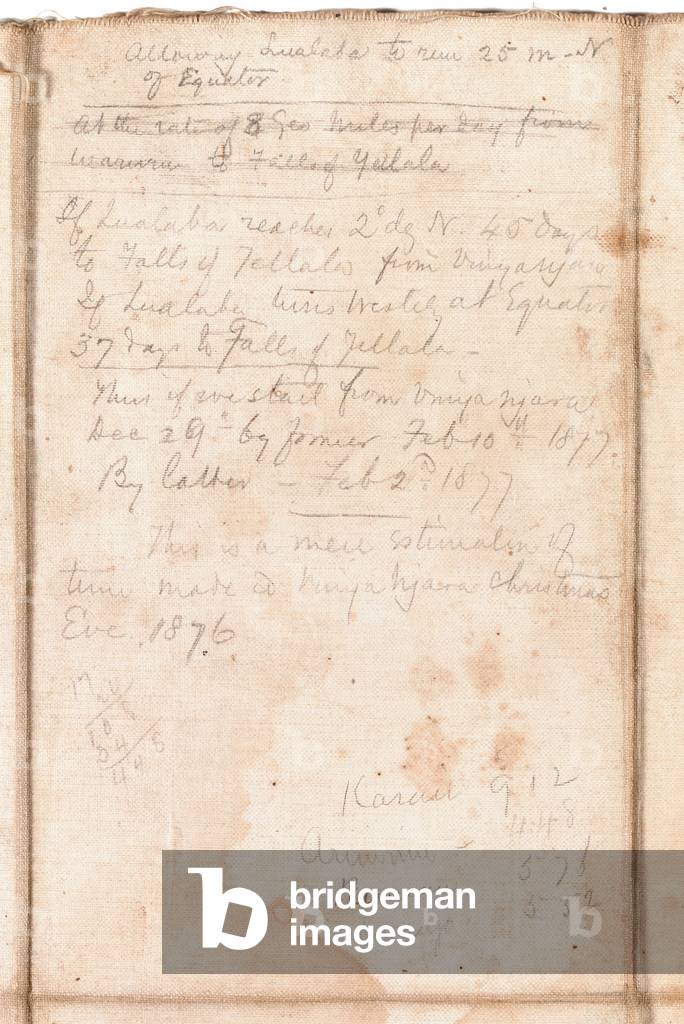 Allowing Lualaba to run 25 m - N
of Equator
At the rate of 8 Geo Miles per day from
to Falls of Yellala
If Lualaba reaches 2° deg N. 45 days
to Falls of Yellala from Vinyanjara
If Lualaba turns Westerly at Equator
37 days to Falls of Yellala -
Thus if we start from Vinya Njara
Dec 29th by former Feb 10th 1877.
By latter - Feb 2nd. 1877
This is a mere estimation of
time made at Vinya Njara Christmas
Eve. 1876
17
448
912
448
576
552
b bridgeman
images